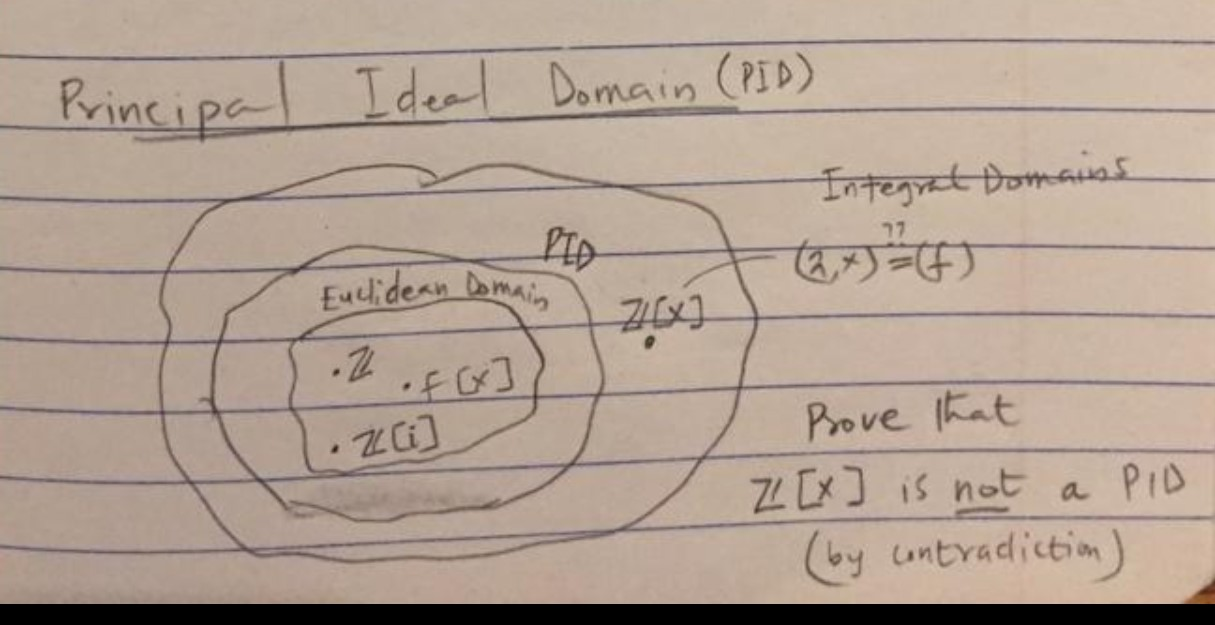 Principal Ideal Domain (PID)
Integral Domains
PID
??
(2,x) = (f)
Euclidean Domain
ℤ[x]
.ℤ
.f[x]
.ℤ[i]
Prove that
ℤ[x] is not a PID
(by contradiction)